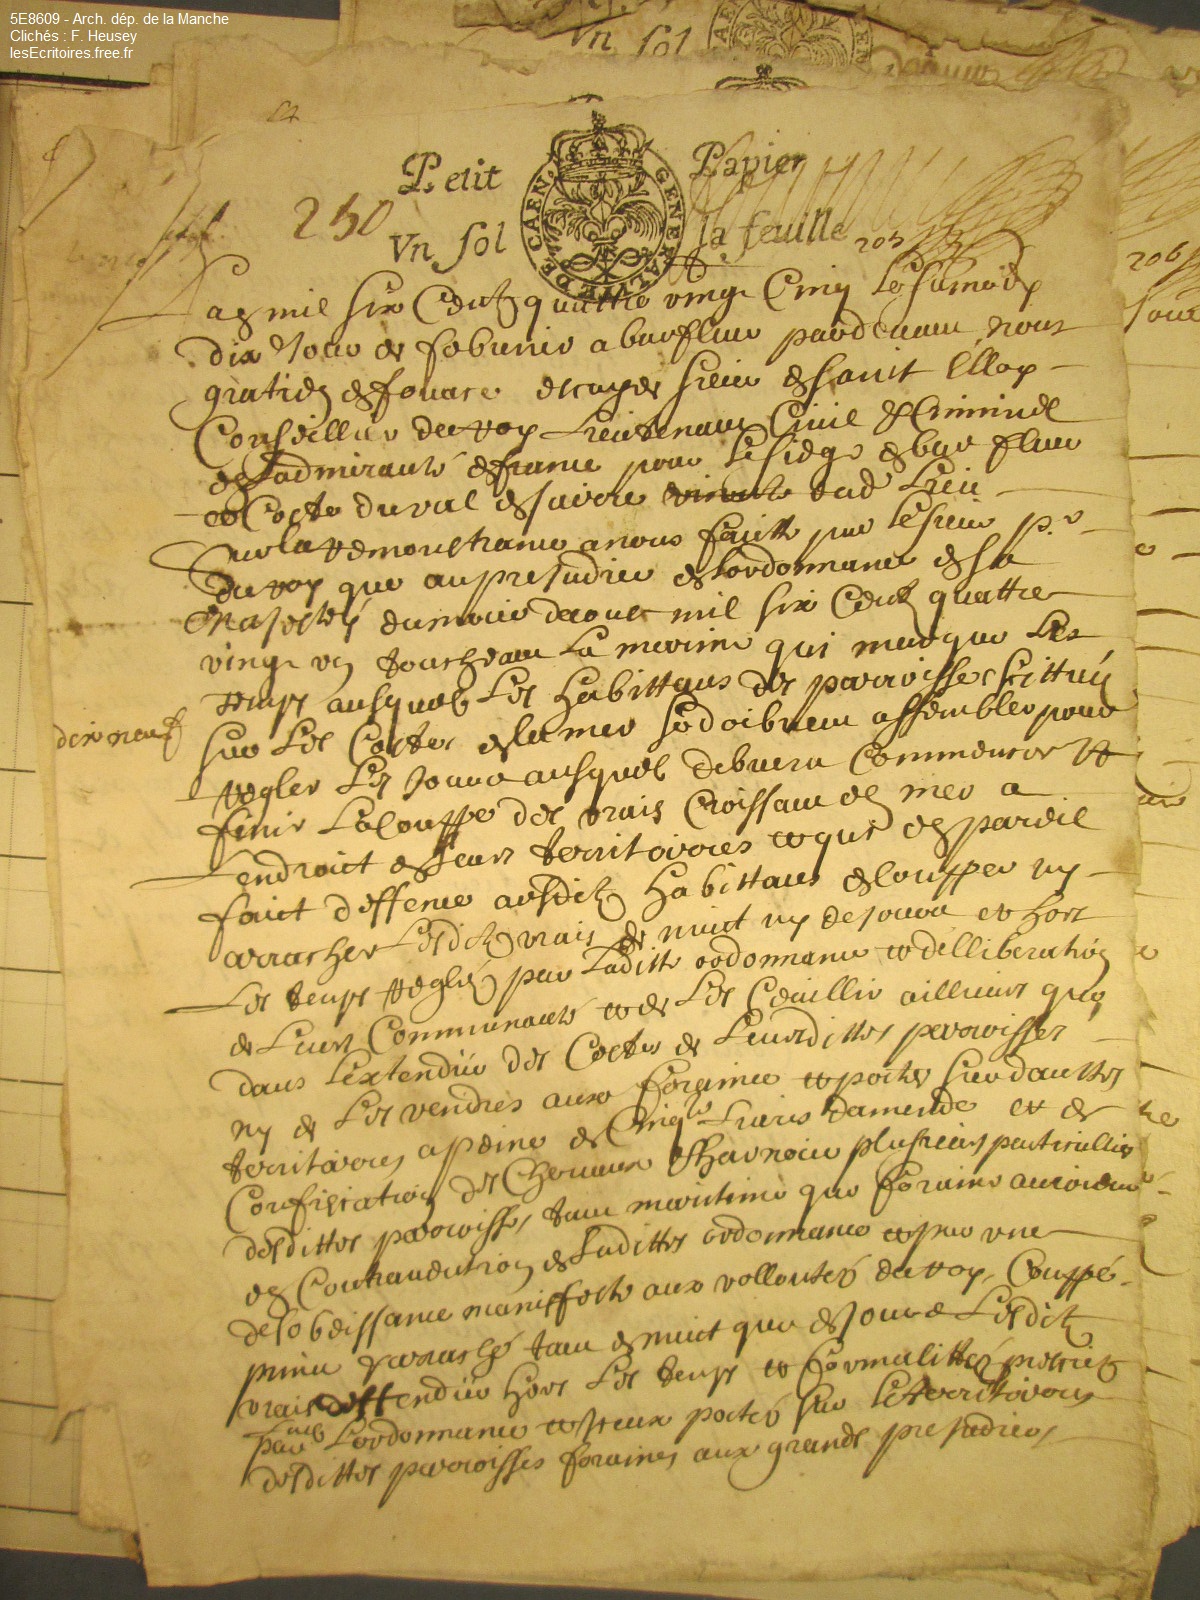 5E8609 - Arch. dép. de la Manche
Clichés : F. Heusey
lesEcritoires.free.fr
Vn sol
Petit Papier
250
Vn sol la feuille 205
GENERALITE DE CAEN
206
Lan mil six Centz quattre vingt Cinq Le samedy
dix Jour de febvrier a barfleur pardevant nous
gratien de fouace escuyer sieur de sainct Elloy
Conseiller du roy Lieutenant Civil & Criminel
de Ladmirauté de france pour le siege de barfleur
et Coste du val de saire dud Lieu
Sur la remonstrance a nous faitte par le sieur pr
du roy que au prejudice de lordonnance de sa
Majesté du mois daoust mil six Centz quattre
vingt un touchant La marine qui marque Les
temps ausquels Les habittans des parroisses scittuées
dix neuf
sur Les Costes de la mer se doibvent assembler pour
regler Les Jours ausquels debvera Commencer et
finir La Couppe des vrais Croissant en mer a
Lendroict de leurs territoires et que de pareil
faict deffence ausditz habittans de Coupper ny
arracher Lesditz vrais de nuict ny de Jour et hors
Les temps reglés par Laditte ordonnance et delliberation
de Leurs Communauté et de Les Ceuillir ailleurs que
dans Lextendue des Costes de Leursdittes parroisses
ny de Les vendres aux forains et porter sur dauttres
territoires a peine de Cinqte Livres damende et de
Confiscation des Chevaux & harnois plusieurs particulliers
desdittes parroisses tant maritime que forains auroient
en Contravention de Laditte ordonnance et par une
desobeissance maniffeste aux vollontés du roy, Couppé
prins & arraché tant de nuict que de Jour Lesditz
vrais deffendue hors Les temps et formalittés prescriptz
par Lordonnance et iceux portés sur Le territoires
desdittes parroisses foraines aux grands prejudices